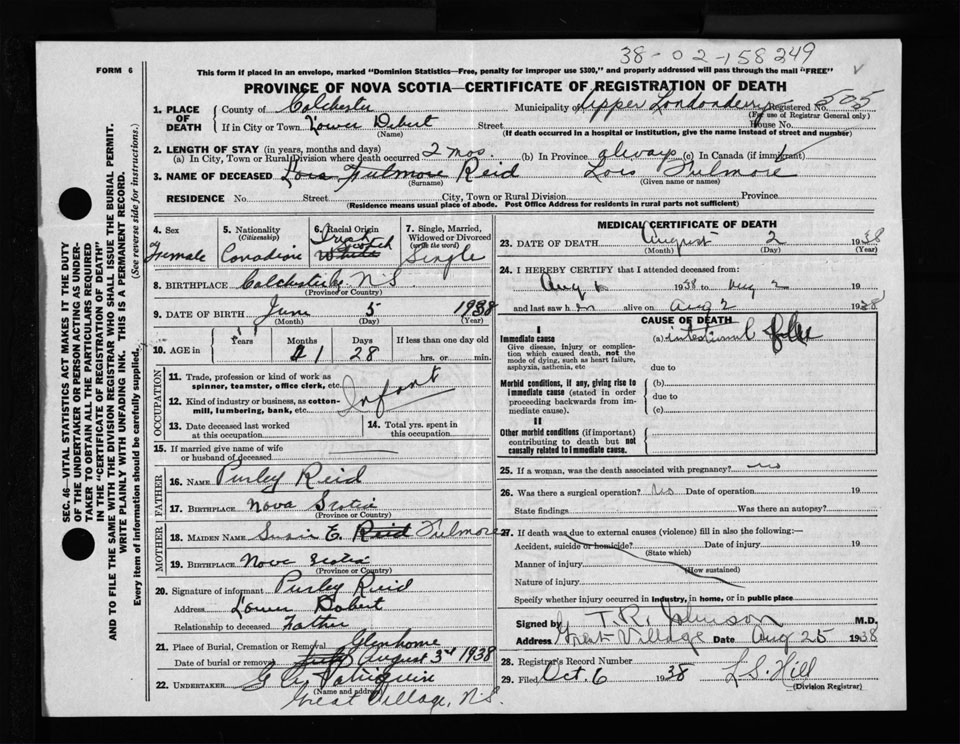 38-02-158249
FORM 6
This form if placed in an envelope, marked "Dominion Statistics—Free, penalty for improper use $300," and properly addressed will pass through the mail "FREE"
PROVINCE OF NOVA SCOTIA—CERTIFICATE OF REGISTRATION OF DEATH
1. PLACE OF DEATH County of Colchester Municipality of Upper Londonderry Registered No. 505
(For use of Registrar General only)
If in City or Town Lower Debert Street House No.
(Name) (If death occurred in a hospital or institution, give the name instead of street and number)
2. LENGTH OF STAY (in years, months and days)
(a) In City, Town or Rural Division where death occurred 2 mos. (b) In Province always (c) In Canada (if immigrant)
3. NAME OF DECEASED Lois Fulmore Reid Lois Fulmore
(Surname) (Given name or names)
RESIDENCE No. Street City, Town or Rural Division Province
(Residence means usual place of abode. Post Office Address for residents in rural parts not sufficient)
4. Sex Female
5. Nationality (Citizenship) Canadian
6. Racial Origin Scotch White
7. Single, Married, Widowed or Divorced (write the word) Single
8. BIRTHPLACE Colchester Co. N.S
(Province or Country)
9. DATE OF BIRTH June 5 1938
(Month) (Day) (Year)
10. AGE in Years Months 1 Days 28 If less than one day old hrs. or min.
OCCUPATION
11. Trade, profession or kind of work as spinner, teamster, office clerk, etc. Infant
12. Kind of industry or business, as cotton-mill, lumbering, bank, etc.
13. Date deceased last worked at this occupation
14. Total yrs. spent in this occupation
15. If married give name of wife or husband of deceased
FATHER
16. NAME Purley Reid
17. BIRTHPLACE Nova Scotia
(Province or Country)
MOTHER
18. MAIDEN NAME Susie E. Reid Fulmore
19. BIRTHPLACE Nova Scotia
(Province or Country)
20. Signature of informant Purley Reid
Address Lower Debert
Relationship to deceased Father
21. Place of Burial, Cremation or Removal Glenholme
Date of burial or removal August 3rd 1938
22. UNDERTAKER
(Name and address)
Great Village, N.S.
MEDICAL CERTIFICATE OF DEATH
23. DATE OF DEATH August 2 1938
(Month) (Day) (Year)
24. I HEREBY CERTIFY that I attended deceased from:
Aug 1938 to Aug 2 19
and last saw h er alive on Aug 2 1938
CAUSE OF DEATH
I
Immediate cause
Give disease, injury or complication which caused death, not the mode of dying, such as heart failure, asphyxia, asthenia, etc
(a) intestinal flu
due to
Morbid conditions, if any, giving rise to immediate cause (stated in order proceeding backwards from immediate cause).
(b)
due to
(c)
II
Other morbid conditions (if important) contributing to death but not causally related to immediate cause.
25. If a woman, was the death associated with pregnancy? no
26. Was there a surgical operation? no Date of operation 19
State findings Was there an autopsy?
27. If death was due to external causes (violence) fill in also the following:—
Accident, suicide or homicide? Date of injury 19
(State which)
Manner of injury
(How sustained)
Nature of injury
Specify whether injury occurred in industry, in home, or in public place
Signed by T.R. Johnson M.D.
Address Great Village Date Aug 25 1938
28. Registrar's Record Number
29. Filed Oct. 6 1938 L.S. Hill
(Division Registrar)
SEC. 46—VITAL STATISTICS ACT MAKES IT THE DUTY
OF THE UNDERTAKER OR PERSON ACTING AS UNDER-
TAKER TO OBTAIN ALL THE PARTICULARS REQUIRED
IN THE "CERTIFICATE OF REGISTRATION OF DEATH"
AND TO FILE THE SAME WITH THE DIVISION REGISTRAR WHO SHALL ISSUE THE BURIAL PERMIT.
WRITE PLAINLY WITH UNFADING INK. THIS IS A PERMANENT RECORD.
Every item of information should be carefully supplied. (See reverse side for instructions.)